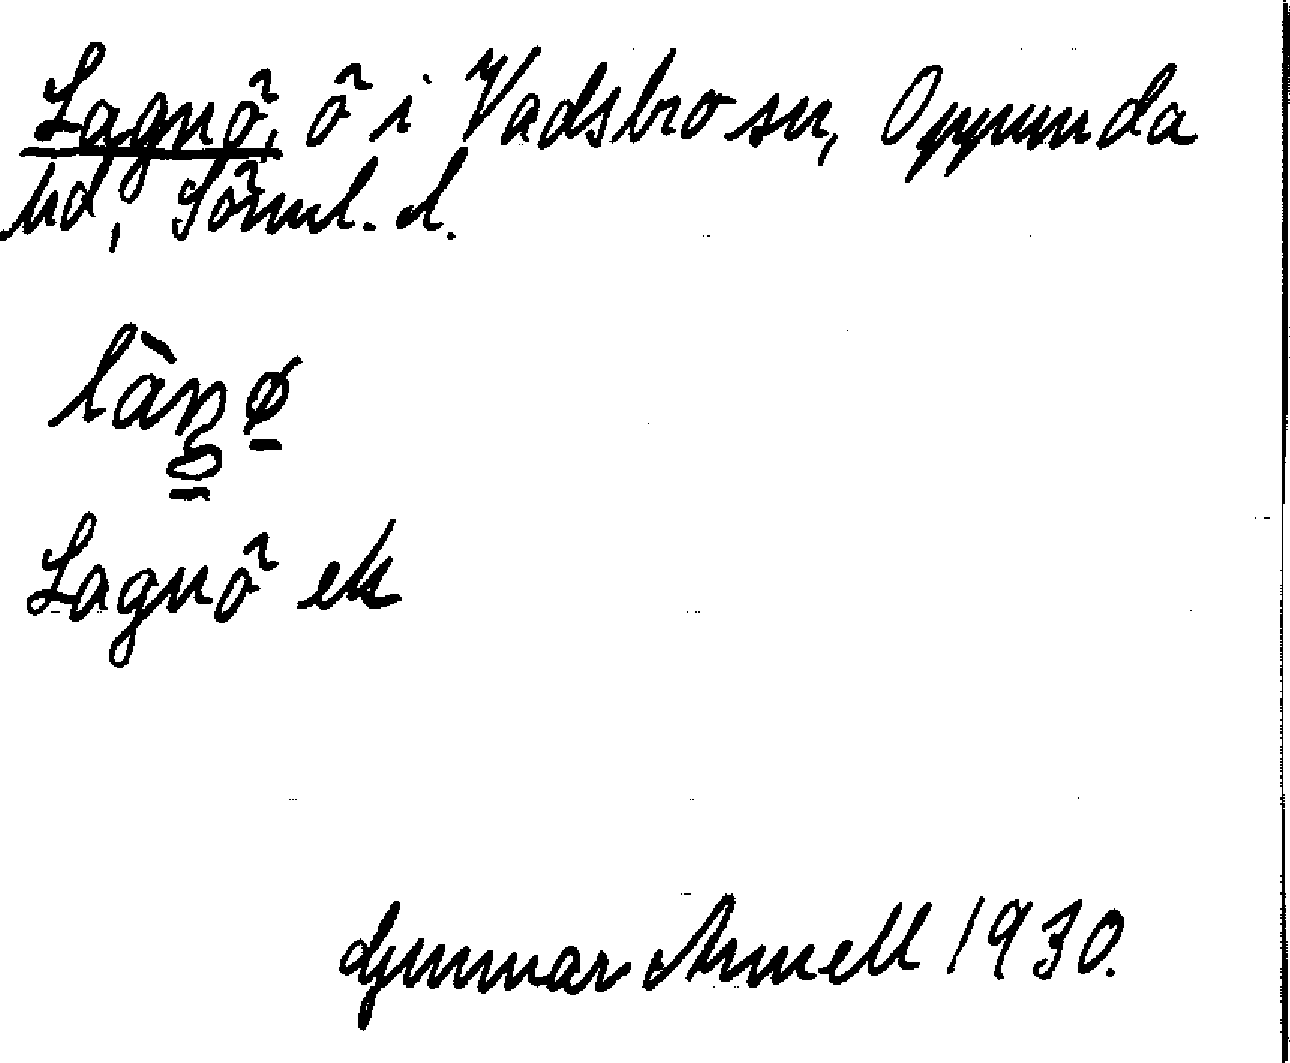 Lagnö, ö i Vadsbro sn, Oppunda
hd, Söml. l.
làŋø
Lagnö ek
Gunnar Arnell 1930.